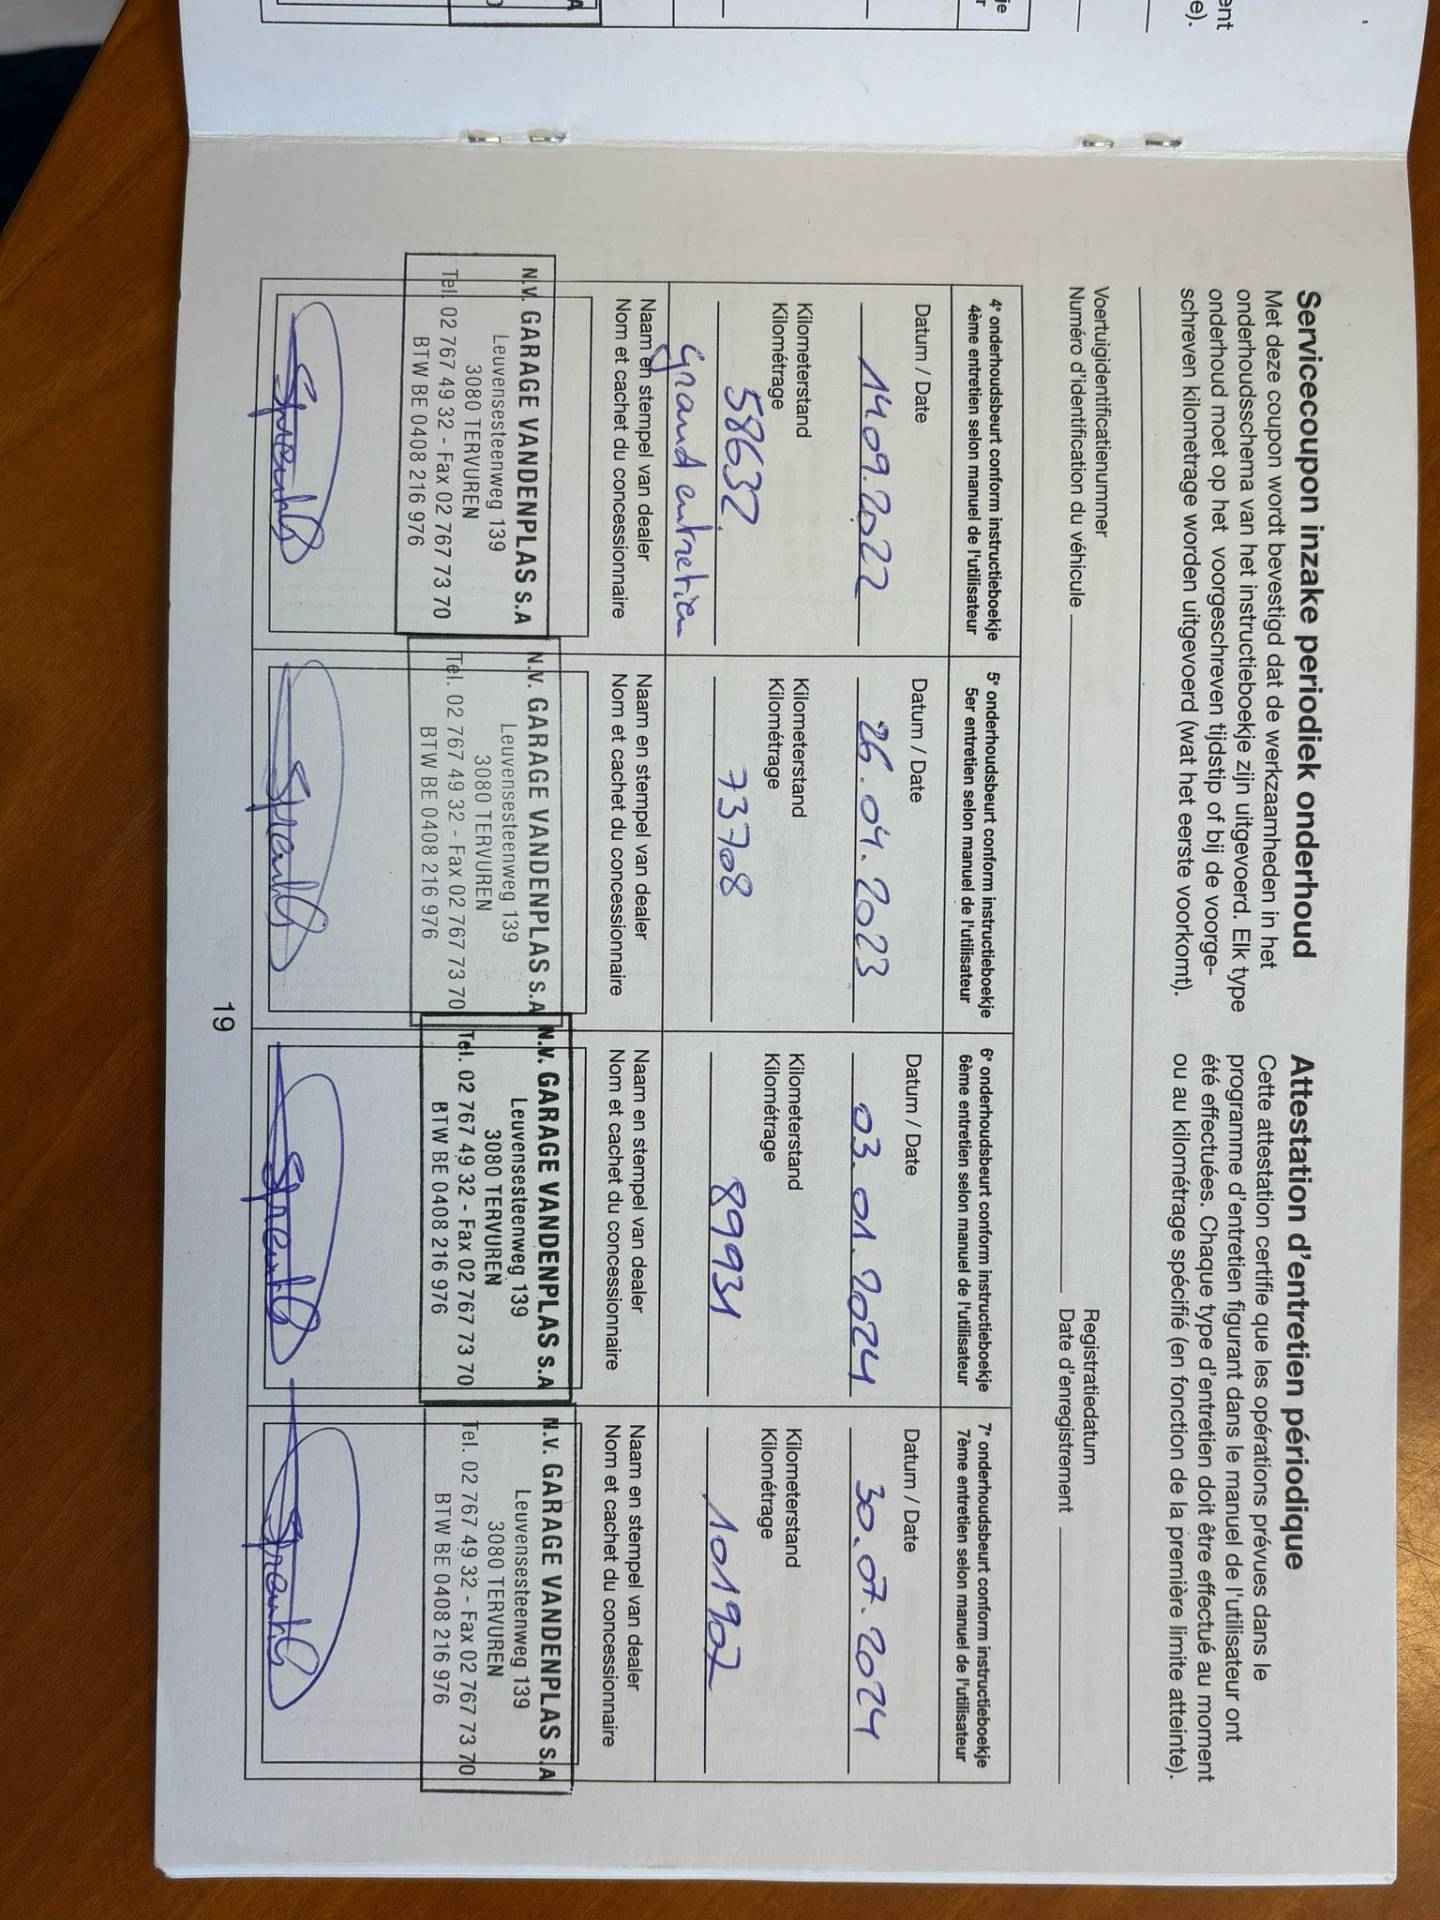 Servicecoupon inzake periodiek onderhoud
Met deze coupon wordt bevestigd dat de werkzaamheden in het
onderhoudsschema van het instructieboekje zijn uitgevoerd. Elk type
onderhoud moet op het voorgeschreven tijdstip of bij de voorge-
schreven kilometrage worden uitgevoerd (wat het eerste voorkomt).
Attestation d'entretien périodique
Cette attestation certifie que les opérations prévues dans le
programme d'entretien figurant dans le manuel de l'utilisateur ont
été effectuées. Chaque type d'entretien doit être effectué au moment
ou au kilométrage spécifié (en fonction de la première limite atteinte).
Voertuigidentificatienummer
Numéro d'identification du véhicule
Registratiedatum
Date d'enregistrement
4e onderhoudsbeurt conform instructieboekje
4ème entretien selon manuel de l'utilisateur
Datum / Date
14.09.2022
Kilometerstand
Kilométrage
58632
Grand entretien
Naam en stempel van dealer
Nom et cachet du concessionnaire
N.V. GARAGE VANDENPLAS S.A
Leuvensesteenweg 139
3080 TERVUREN
Tel. 02 767 49 32 - Fax 02 767 73 70
BTW BE 0408 216 976
5e onderhoudsbeurt conform instructieboekje
5er entretien selon manuel de l'utilisateur
Datum / Date
26.04.2023
Kilometerstand
Kilométrage
73708
Naam en stempel van dealer
Nom et cachet du concessionnaire
N.V. GARAGE VANDENPLAS S.A
Leuvensesteenweg 139
3080 TERVUREN
Tel. 02 767 49 32 - Fax 02 767 73 70
BTW BE 0408 216 976
6e onderhoudsbeurt conform instructieboekje
6ème entretien selon manuel de l'utilisateur
Datum / Date
03.01.2024
Kilometerstand
Kilométrage
89931
Naam en stempel van dealer
Nom et cachet du concessionnaire
N.V. GARAGE VANDENPLAS S.A
Leuvensesteenweg 139
3080 TERVUREN
Tel. 02 767 49 32 - Fax 02 767 73 70
BTW BE 0408 216 976
7e onderhoudsbeurt conform instructieboekje
7ème entretien selon manuel de l'utilisateur
Datum / Date
30.07.2024
Kilometerstand
Kilométrage
101907
Naam en stempel van dealer
Nom et cachet du concessionnaire
N.V. GARAGE VANDENPLAS S.A
Leuvensesteenweg 139
3080 TERVUREN
Tel. 02 767 49 32 - Fax 02 767 73 70
BTW BE 0408 216 976
19